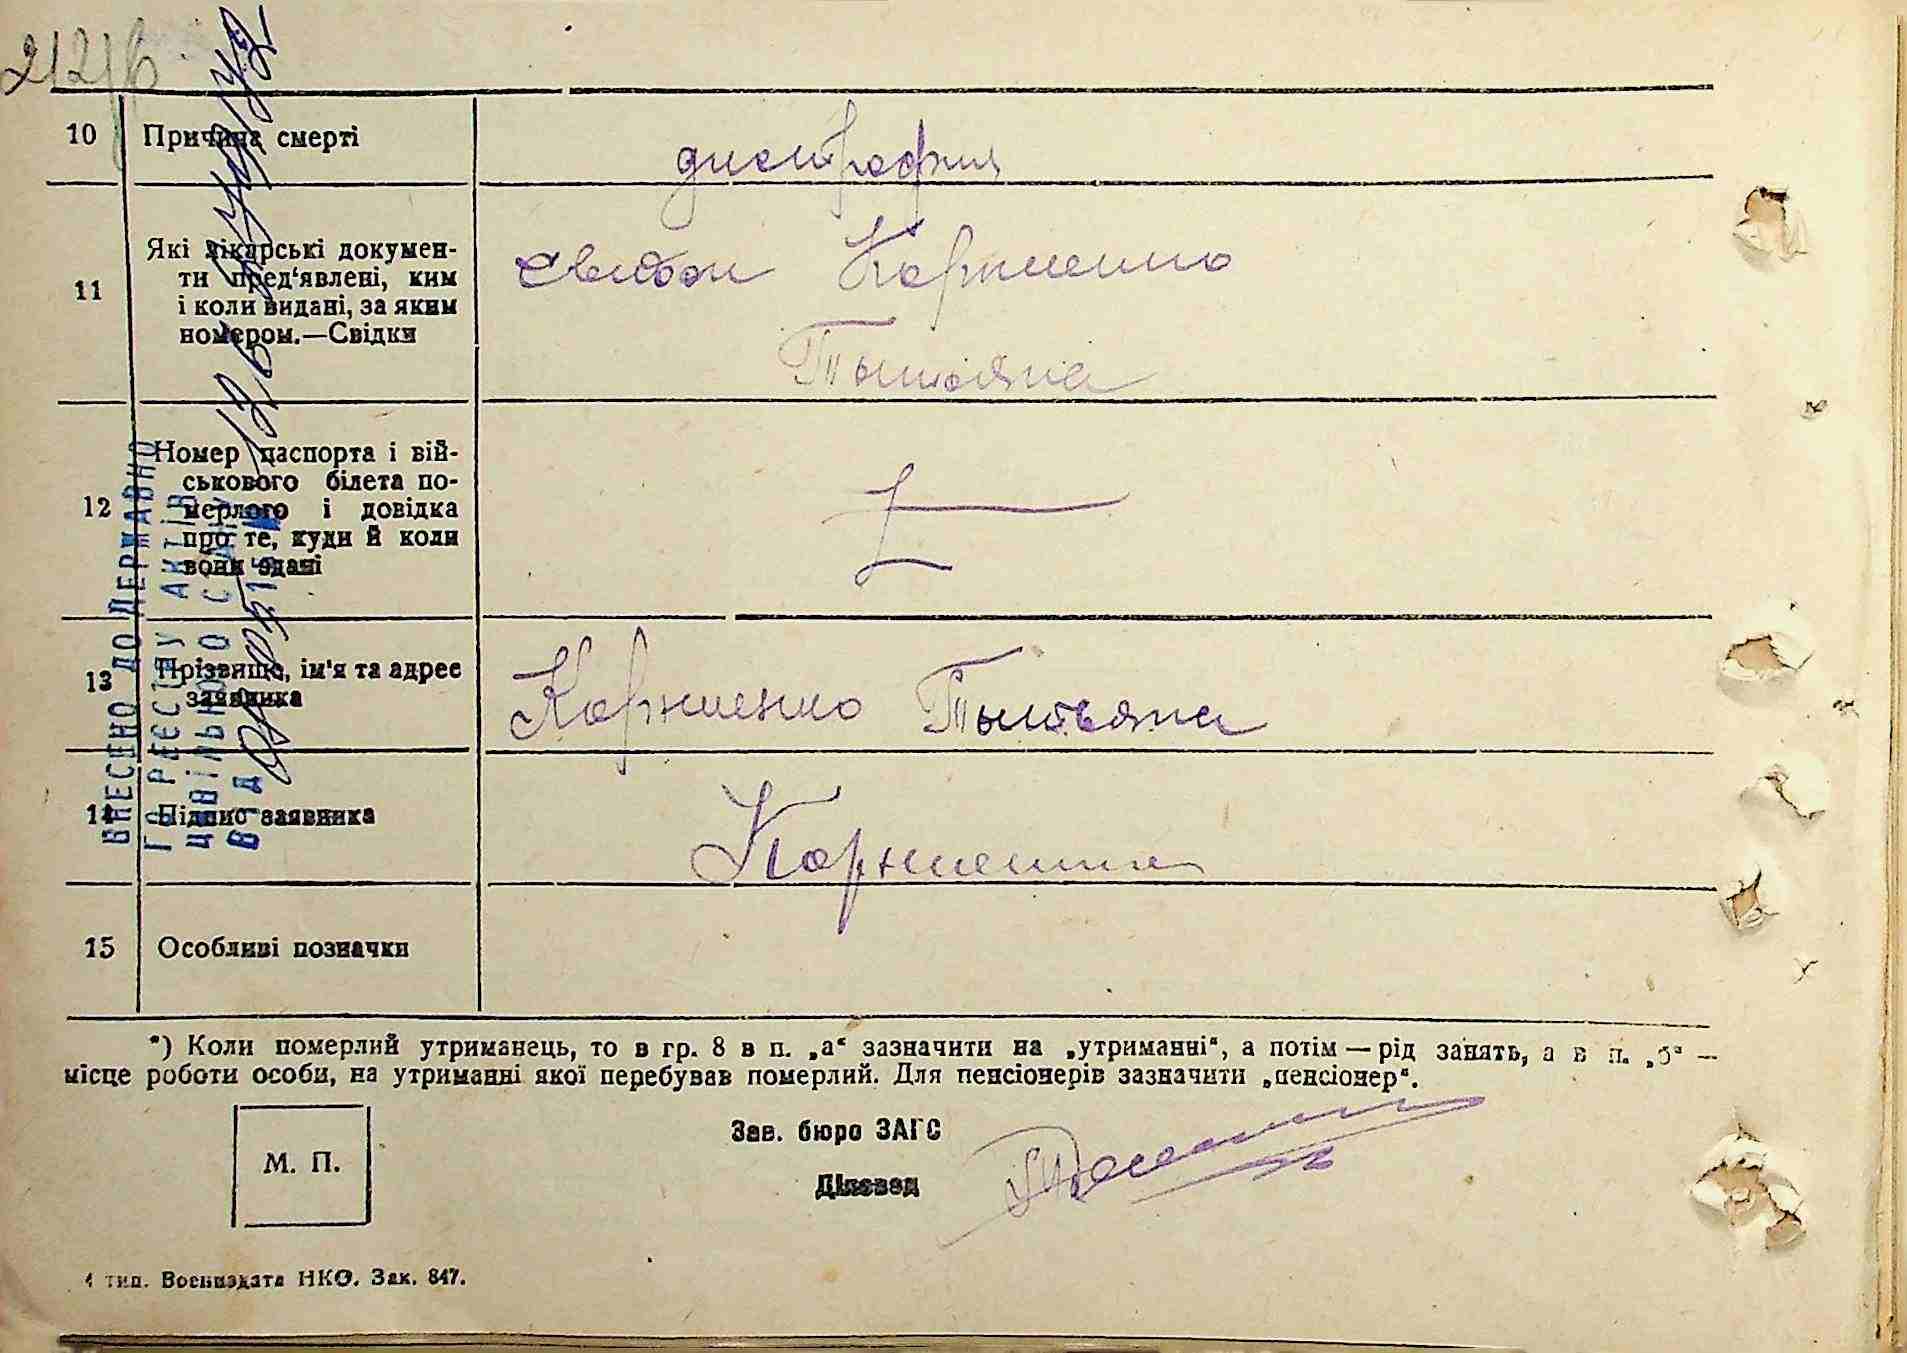 212/6
10 Причина смерті дистрофия
11 Які лікарські докумен-
ти пред'явлені, ким
і коли видані, за яким
номером.—Свідки
Корниенко
Татьяна
12 Номер паспорта і вій-
ськового білета по-
мерлого і довідка
про те, куди й коли
вони здані
13 Прізвище, ім'я та адрес
заявника
Корниенко Татьяна
14 Підпис заявника
Корниенко
15 Особливі позначки
*) Коли померлий утриманець, то в гр. 8 в п. „а“ зазначити на „утриманні“, а потім — рід занять, а в п. „б“ —
місце роботи особи, на утриманні якої перебував померлий. Для пенсіонерів зазначити „пенсіонер“.
М. П.
Зав. бюро ЗАГС
Діловод
1 тип. Воениздата НКО. Зак. 847.
ВНЕСЕНО ДО ДЕРЖАВНО
ГО РЕЄСТРУ АКТІВ
ЦИВІЛЬНОГО СТАНУ
ВІД